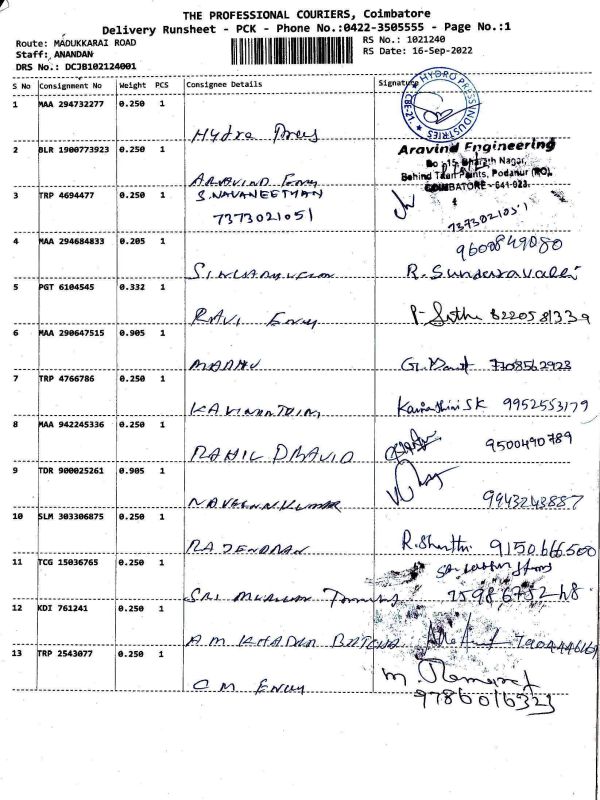 THE PROFESSIONAL COURIERS, Coimbatore
Delivery Runsheet - PCK - Phone No.:0422-3505555 - Page No.:1
Route: MADUKKARAI ROAD RS No.: 1021240
Staff: ANANDAN RS Date: 16-Sep-2022
DRS No.: DCJB102124001
S No Consignment No Weight PCS Consignee Details Signature
HYDRO PRESS INDUSTRIES
CBE-21
1 MAA 294732277 0.250 1
Hydro Press
Aravind Engineering
2 BLR 1900773923 0.250 1
Behind Taan Paints, Podanur (PO),
COIMBATORE - 641 023.
ARAVIND Engg
3 TRP 4694477 0.250 1 S.NAVANEETHAN
7373021051 7373021051
4 MAA 294684833 0.205 1 9600849080
R. Sundaravalli
5 PGT 6104545 0.332 1
RAVI Engg 8220581339
6 MAA 290647515 0.905 1
7708562923
7 TRP 4766786 0.250 1
SK 9952553179
8 MAA 942245336 0.250 1 9500490789
RAHIL DRAVID
9 TDR 900025261 0.905 1
NAVEENKUMAR 9943243887
10 SLM 303306875 0.250 1
RAJENDRAN R. Shanthi 9150666500
11 TCG 15036765 0.250 1
SRI
12 KDI 761241 0.250 1
A M KHADAR BATCHA 7904446169
13 TRP 2543077 0.250 1
C M Engg 9786016323